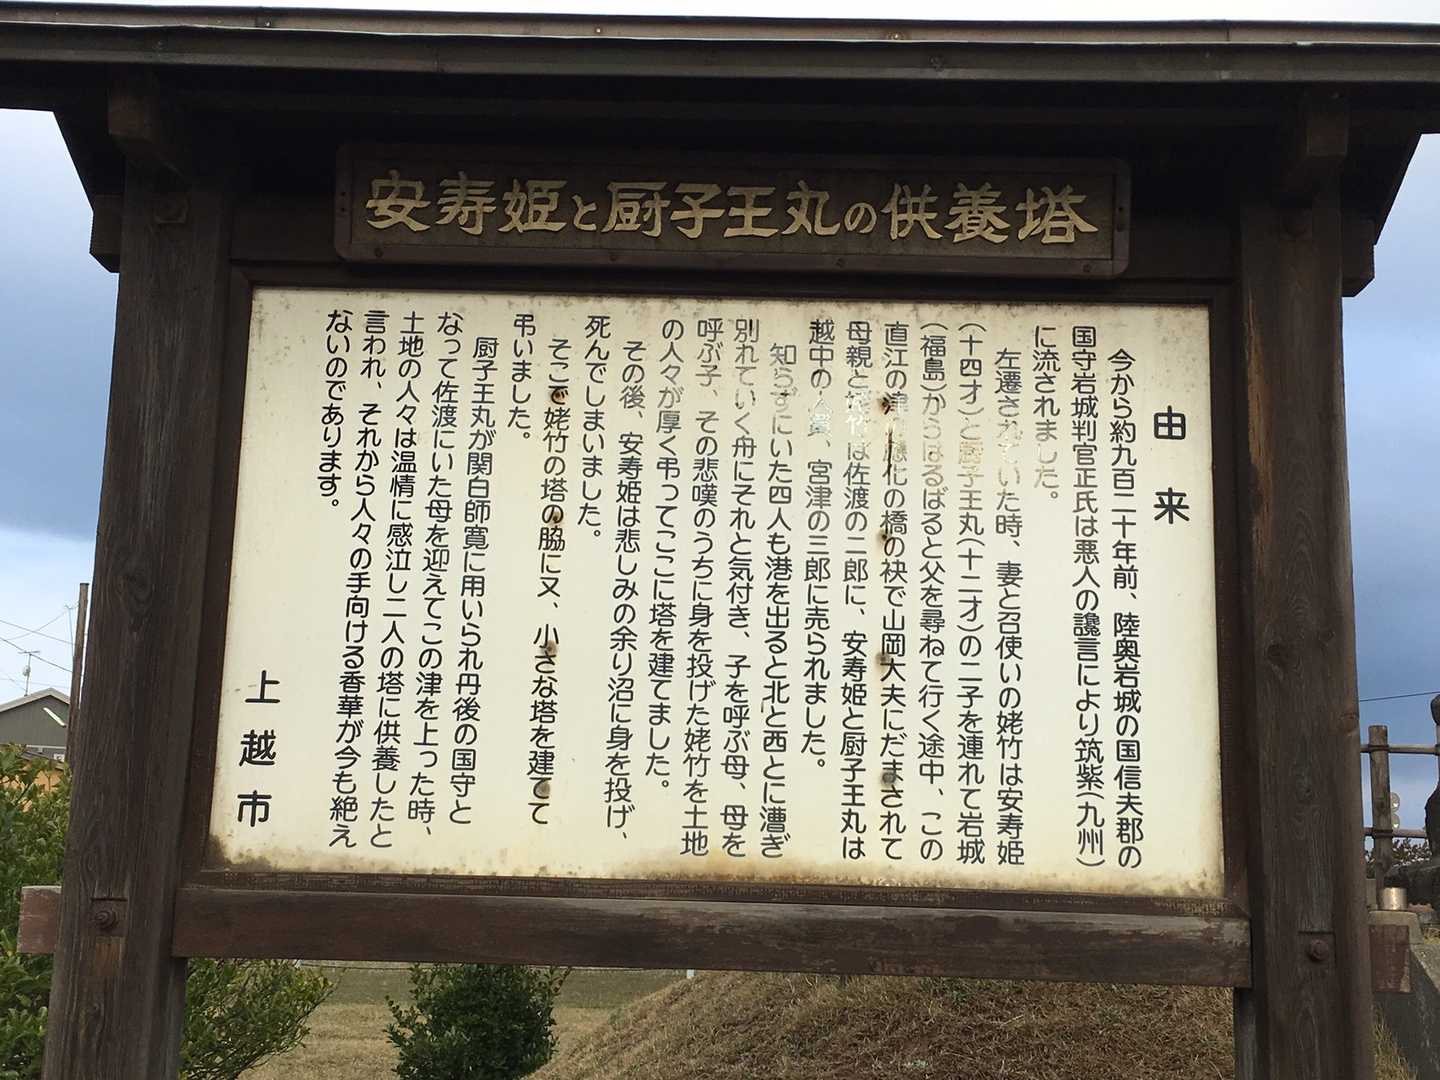 安寿姫と厨子王丸の供養塔
由来
今から約九百二十年前、陸奥岩城の国信夫郡の
国守岩城判官正氏は悪人の讒言により筑紫(九州)
に流されました。
左遷されていた時、妻と召使いの姥竹は安寿姫
(十四才)と厨子王丸(十二才)の二子を連れて岩城
(福島)からはるばると父を尋ねて行く途中、この
直江の津の應化の橋の袂で山岡大夫にだまされて
母親と姥竹は佐渡の二郎に、安寿姫と厨子王丸は
越中の人買、宮津の三郎に売られました。
知らずにいた四人も港を出ると北と西とに漕ぎ
別れていく舟にそれと気付き、子を呼ぶ母、母を
呼ぶ子、その悲嘆のうちに身を投げた姥竹を土地
の人々が厚く弔ってここに塔を建てました。
その後、安寿姫は悲しみの余り沼に身を投げ、
死んでしまいました。
そこで姥竹の塔の脇に又、小さな塔を建てて
弔いました。
厨子王丸が関白師寛に用いられ丹後の国守と
なって佐渡にいた母を迎えてこの津を上った時、
土地の人々は温情に感泣し二人の塔に供養したと
言われ、それから人々の手向ける香華が今も絶え
ないのであります。
上越市